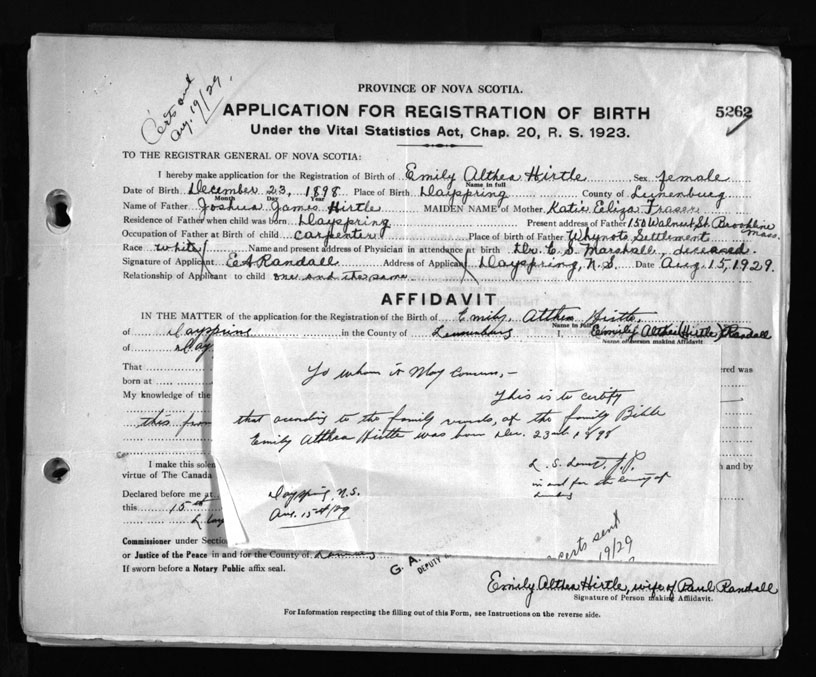 Certs sent
Aug. 19/29.
PROVINCE OF NOVA SCOTIA.
APPLICATION FOR REGISTRATION OF BIRTH
5262
Under the Vital Statistics Act, Chap. 20, R. S. 1923.
TO THE REGISTRAR GENERAL OF NOVA SCOTIA:
I hereby make application for the Registration of Birth of Emily Althea Hirtle Sex female
Name in full
Date of Birth December 23, 1898 Place of Birth Dayspring County of Lunenburg
Month Day Year
Name of Father Joshua James Hirtle MAIDEN NAME of Mother Katie Eliza
Residence of Father when child was born Dayspring Present address of Father 150 Walnut St. Brookline Mass.
Occupation of Father at Birth of child carpenter Place of birth of Father Whynots Settlement
Race white Name and present address of Physician in attendance at birth Dr. C. S. Marshall, deceased.
Signature of Applicant E A Randall Address of Applicant Dayspring, N.S. Date Aug. 15, 1929.
Relationship of Applicant to child one and the same
AFFIDAVIT
IN THE MATTER of the application for the Registration of the Birth of Emily Althea Hirtle
Name in full
of Dayspring in the County of Lunenburg I, Emily Althea (Hirtle) Randall
Name of Person making Affidavit
of Day
That
ered was
born at
My knowledge of the
this
To whom it May Concern,-
This is to certify
that according to the family records, of the family Bible
Emily Althea Hirtle was born Dec. 23rd 1898
J.P.
in and for the County of
Lunenburg
Dayspring, N.S.
Aug. 15th/29
I make this solen
and by
virtue of The Canada
Declared before me at
this 15th
Commissioner under Section
or Justice of the Peace in and for the County of Lunenburg
G. A.
DEPUTY
certs sent
19/29
If sworn before a Notary Public affix seal.
Emily Althea Hirtle, wife of Paul Randall
Signature of Person making Affidavit.
For Information respecting the filling out of this Form, see Instructions on the reverse side.